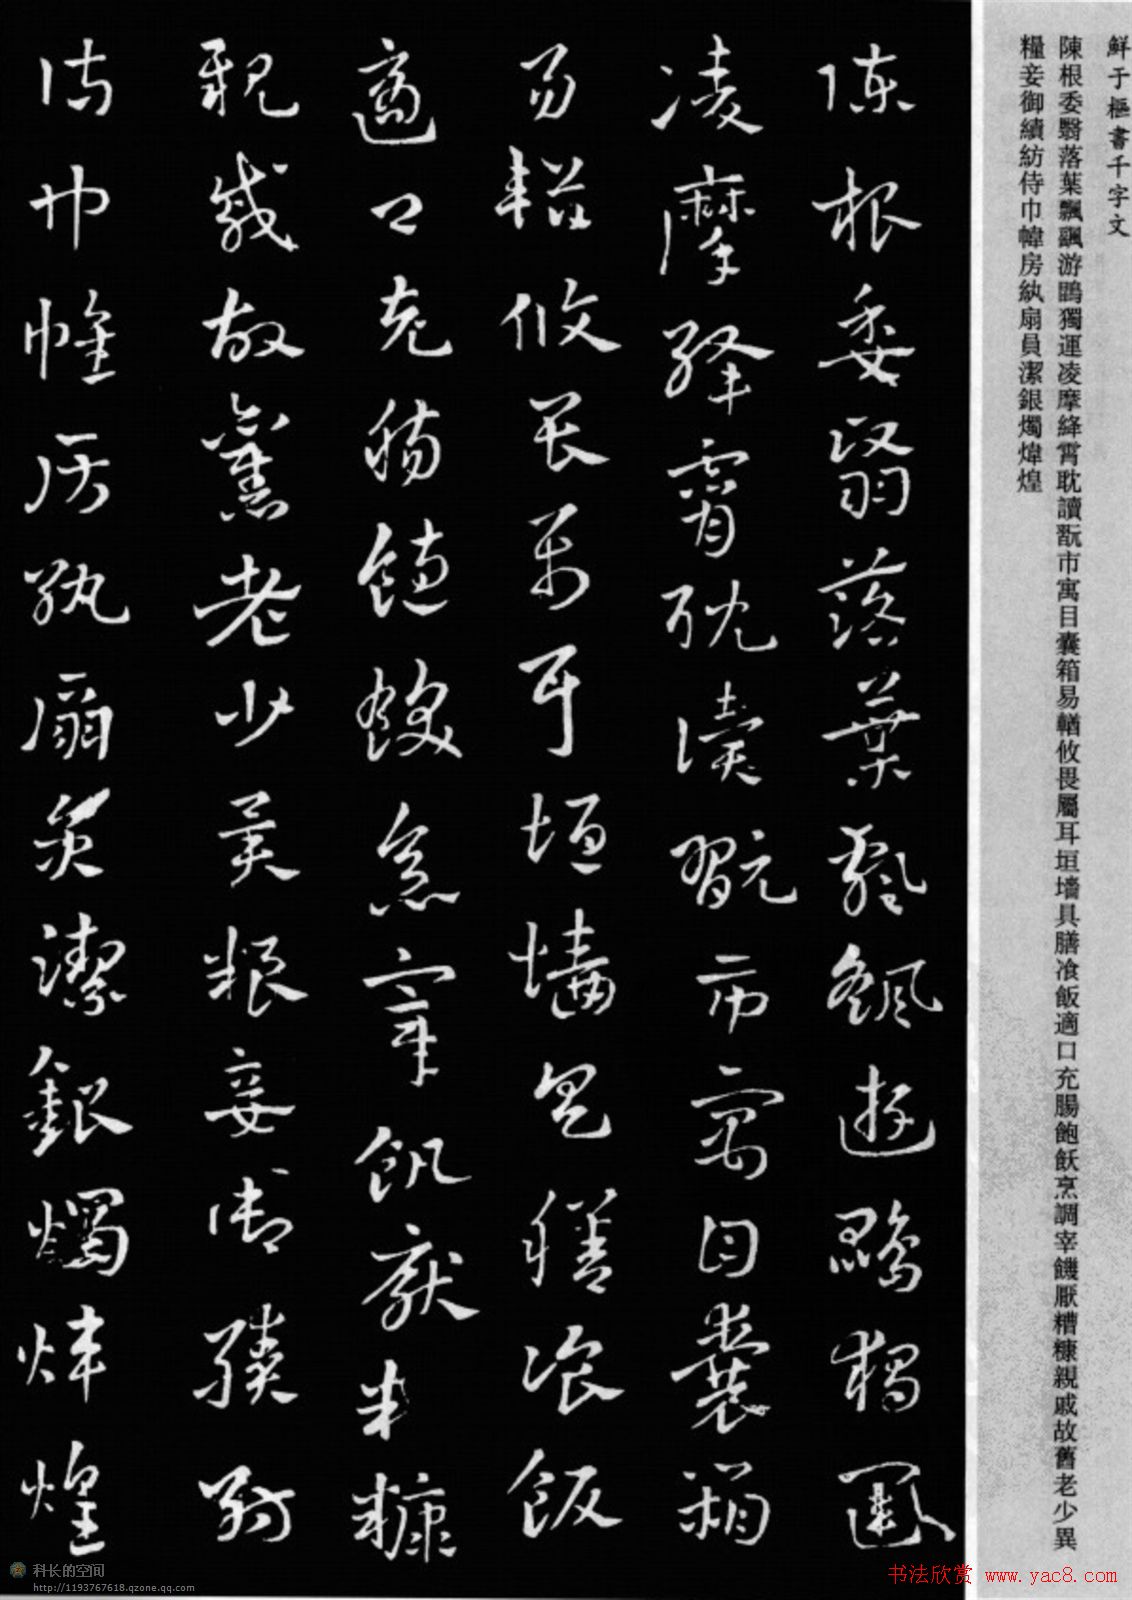 鮮于樞書千字文
陳根委翳落葉飄颻游鵾獨運凌摩絳霄耽讀翫市寓目囊箱易輶攸畏屬耳垣墻具膳飡飯適口充腸飽飫烹調宰饑厭糟糠親戚故舊老少異
糧妾御績紡侍巾幃房紈扇員潔銀燭煒煌
陳根委翳落葉飄颻遊鵾獨運
凌摩絳霄耽讀翫市寓目囊箱
易輶攸畏屬耳垣墻具膳飡飯
適口充腸飽飫烹宰飢厭糟糠
親戚故舊老少異粮妾御績紡
侍巾帷房紈扇員潔銀燭煒煌
科长的空间
http://1193767618.qzone.qq.com
书法欣赏 www.yac8.com